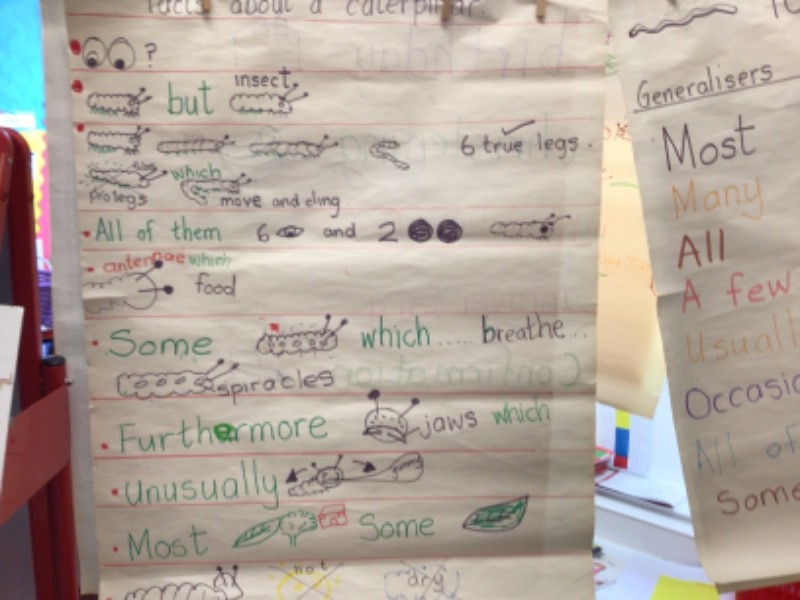 facts about a caterpillar.
?
insect
but
6 true legs.
prolegs which move and cling
All of them 6 and 2
antennae which
food
Some which..... breathe...
spiracles
Furthermore jaws which
Unusually
Most Some
not dry
Generalisers
Most
Many
All
A few
Usually
All of
Some